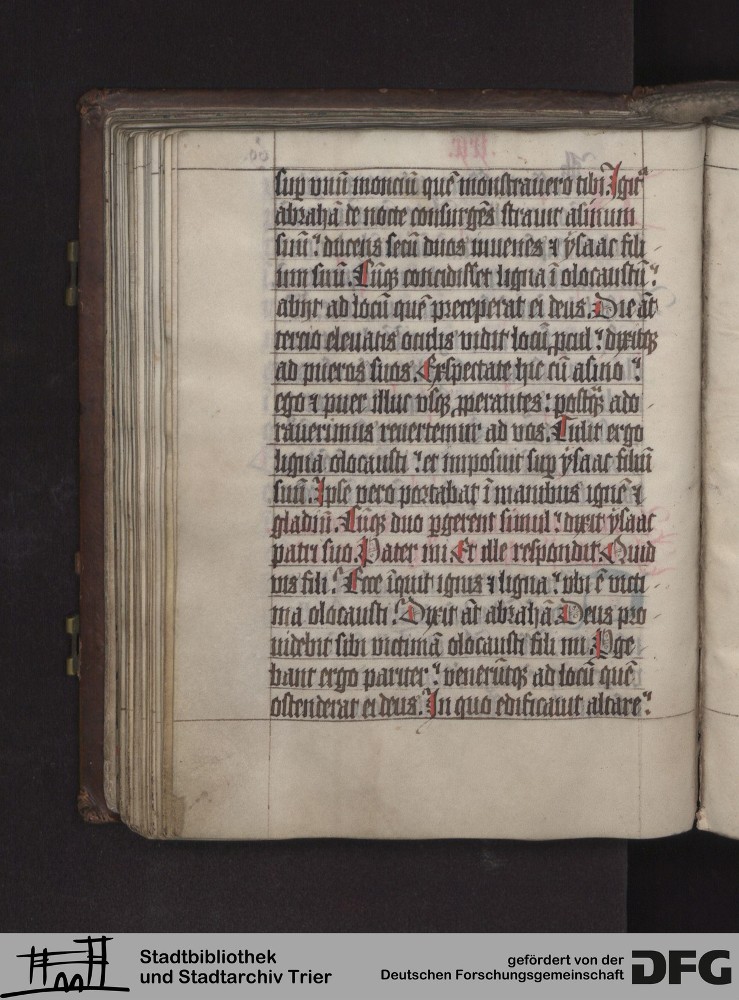 sup̱ vnū monciū quē monstrauero tibi. Igit᷑
abrahā de nocte consurgēs strauit asinum
suū ducens secū duos iuuenes ⁊ ẏsaac fili
um suū. Cūqꝫ concidisset ligna ī olocaustū
abijt ad locū quē preceperat ei deus. Die āt
tercio eleuatis oculis vidit locū ꝓcul dixitqꝫ
ad pueros suos. Exspectate hic cū asino
ego ⁊ puer illuc vsqꝫ ꝓperantes postq̄ꝫ ado
rauerimus reuertemur ad vos. Tulit ergo
ligna olocausti et imposuit sup̱ ẏsaac filiū
suū. Ipse vero portabat ī manibus ignē ⁊
gladiū. Cūqꝫ duo ꝑgerent simul dixit ẏsaac
patri suo. Pater mi. Et ille respondit. Quid
vis fili? Ecce īquit ignis ⁊ ligna vbi ē victi
ma olocausti? Dixit āt abrahā. Deus pro
uidebit sibi victimā olocausti fili mi. Pge
bant ergo pariter venerūtqꝫ ad locū quē
ostenderat ei deus. In quo edificauit altare
Stadtbibliothek
und Stadtarchiv Trier
gefördert von der
Deutschen Forschungsgemeinschaft
DFG